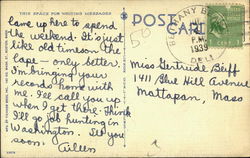 THIS SPACE FOR WRITING MESSAGES
POST CARD
Came up here to spend
the weekend. It's just
like old times on the
Cape - only better.
I'm bringing your
records home with
me. I'll call you up
when I get there. Think
I'll go job hunting in
Washington. See you
soon.
Aileen
50
BETHANY BEACH
P.M.
1939
DEL.
Miss Gertrude Bluff
1411 Blue Hill Avenue
Mattapan, Mass